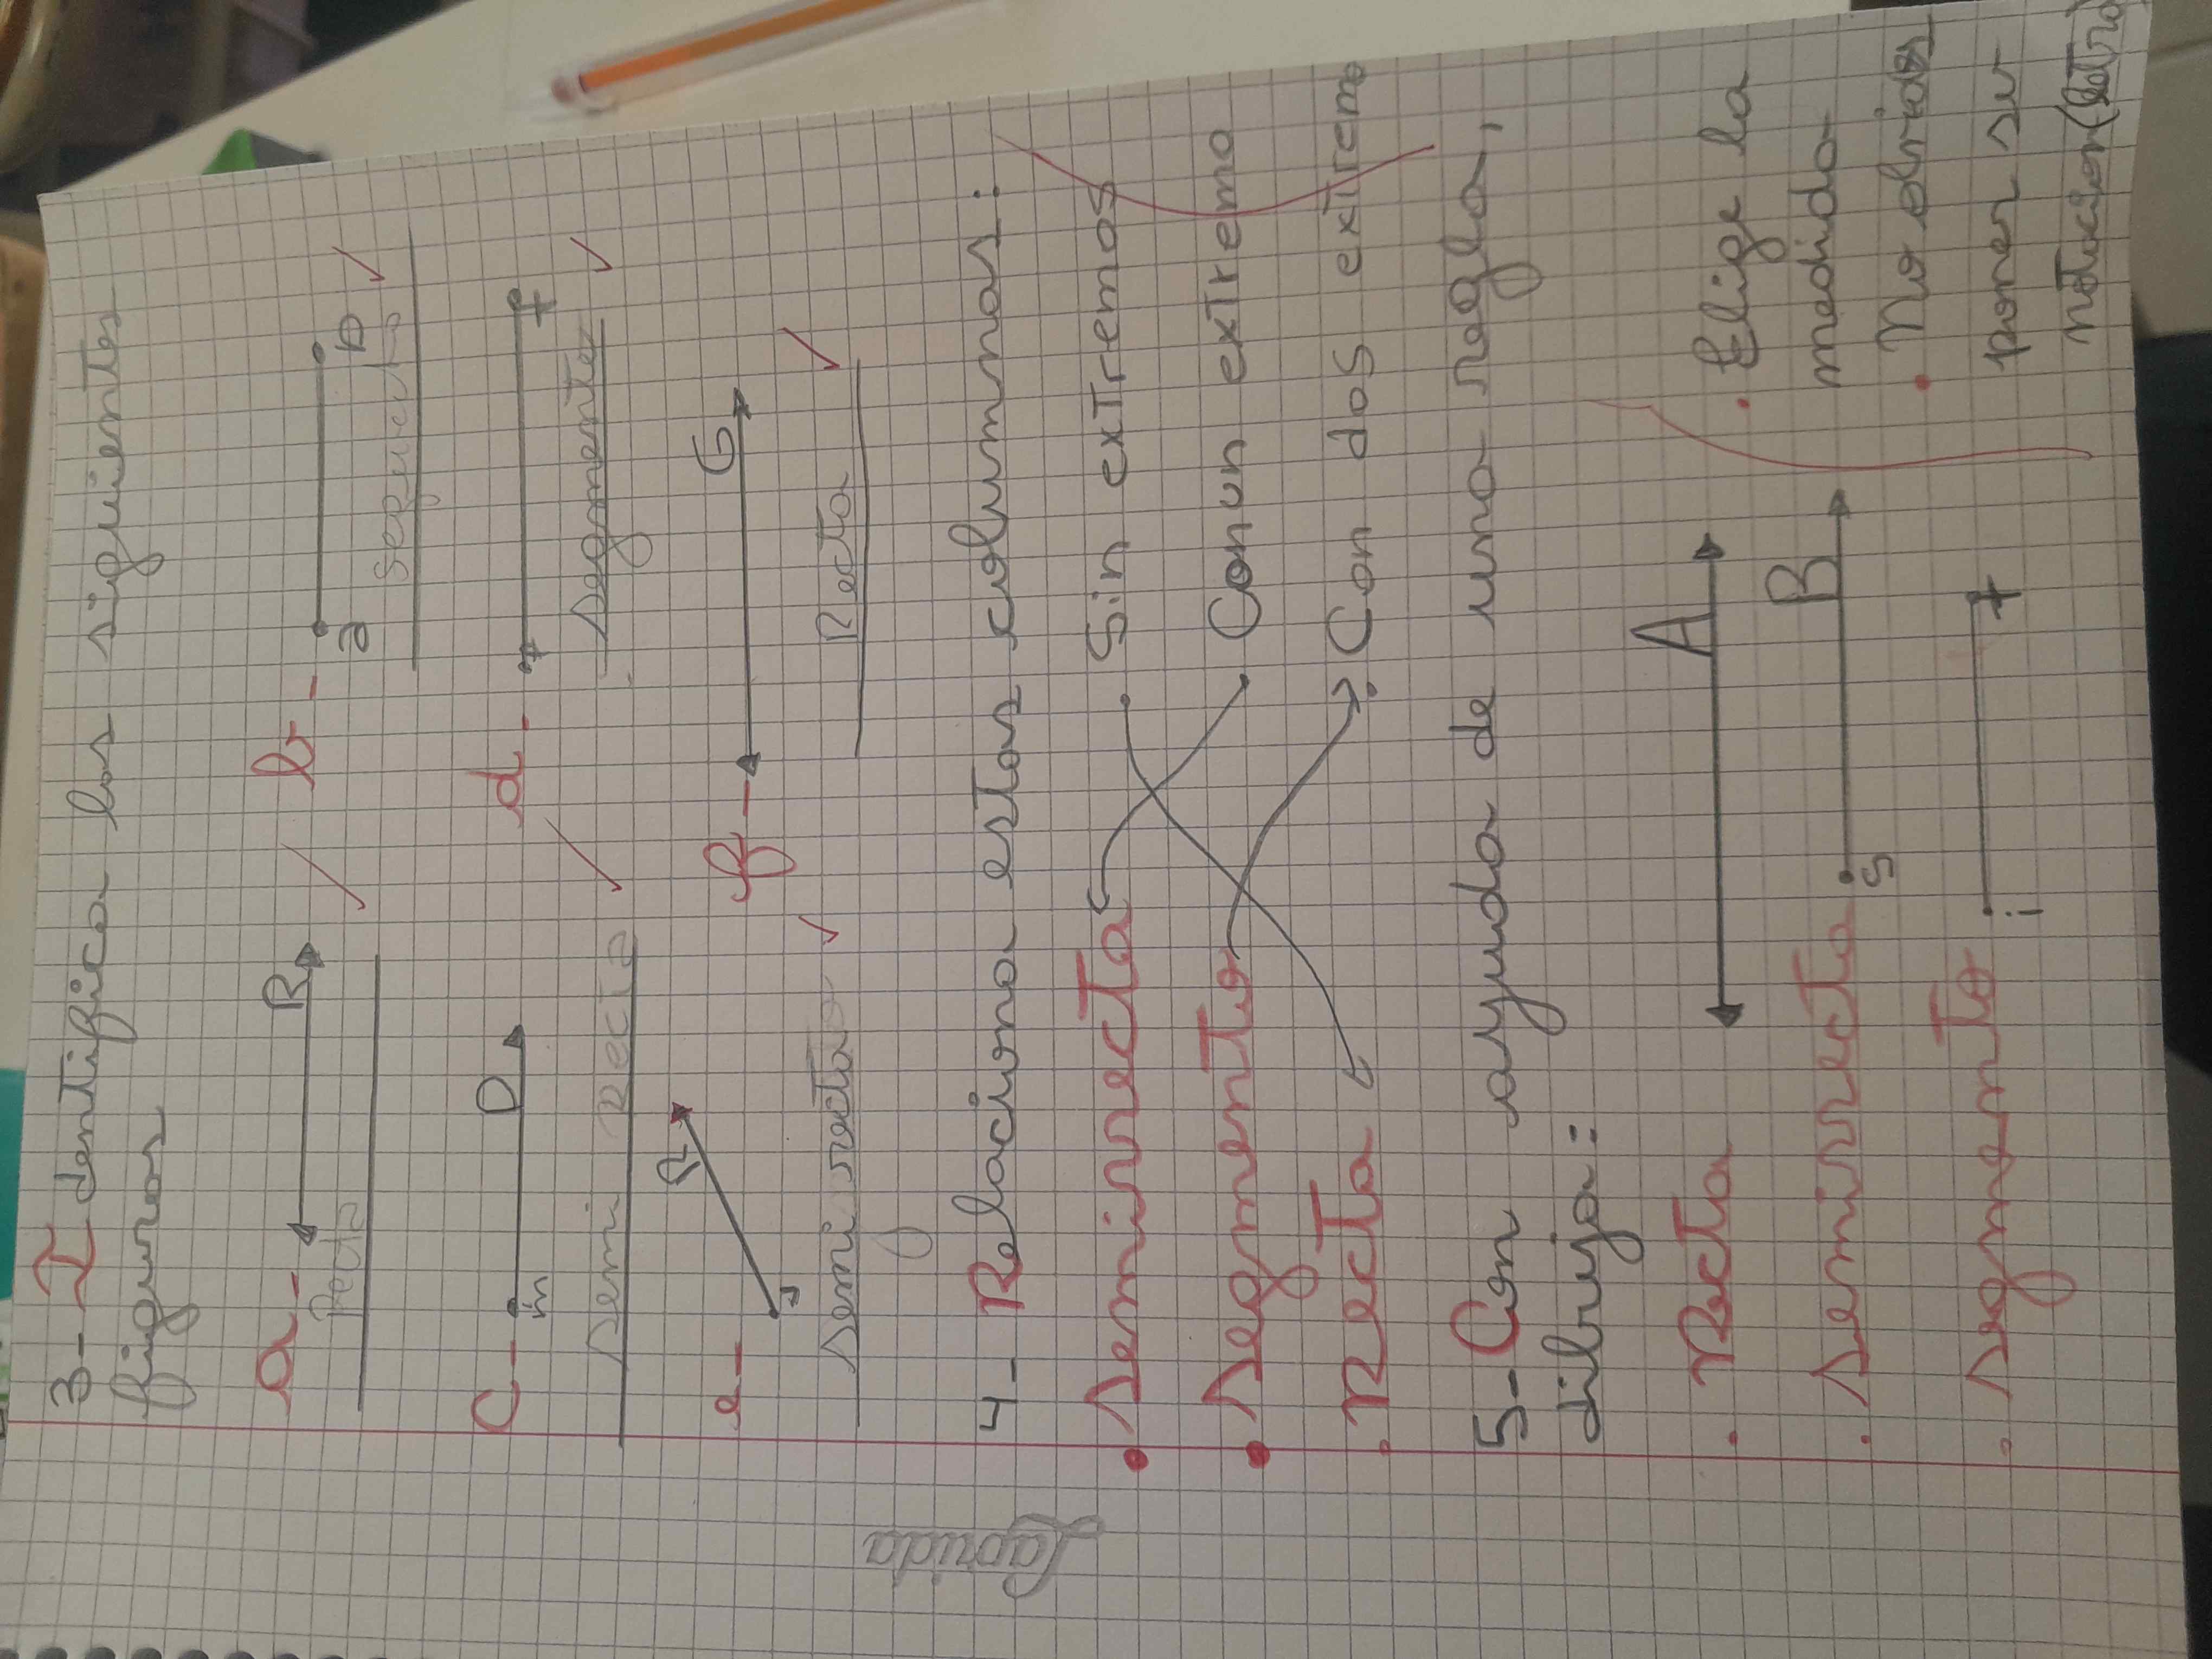 3- Identifica los siguientes
figuras
a- R b- a b
Recta segmento
C- m D d- t f
Semi recta Segmento
e- s R f- G
Semi recta Recta
4- Relaciona estas columnas:
• Semirrecta • Sin extremos
• Segmento • Con un extremo
• Recta • Con dos extremo
5- Con ayuda de una regla,
dibuja:
• Recta A • Elige la
medida
• Semirrecta s B • No olvides
poner su
• Segmento i t notación (letra)
Laguida